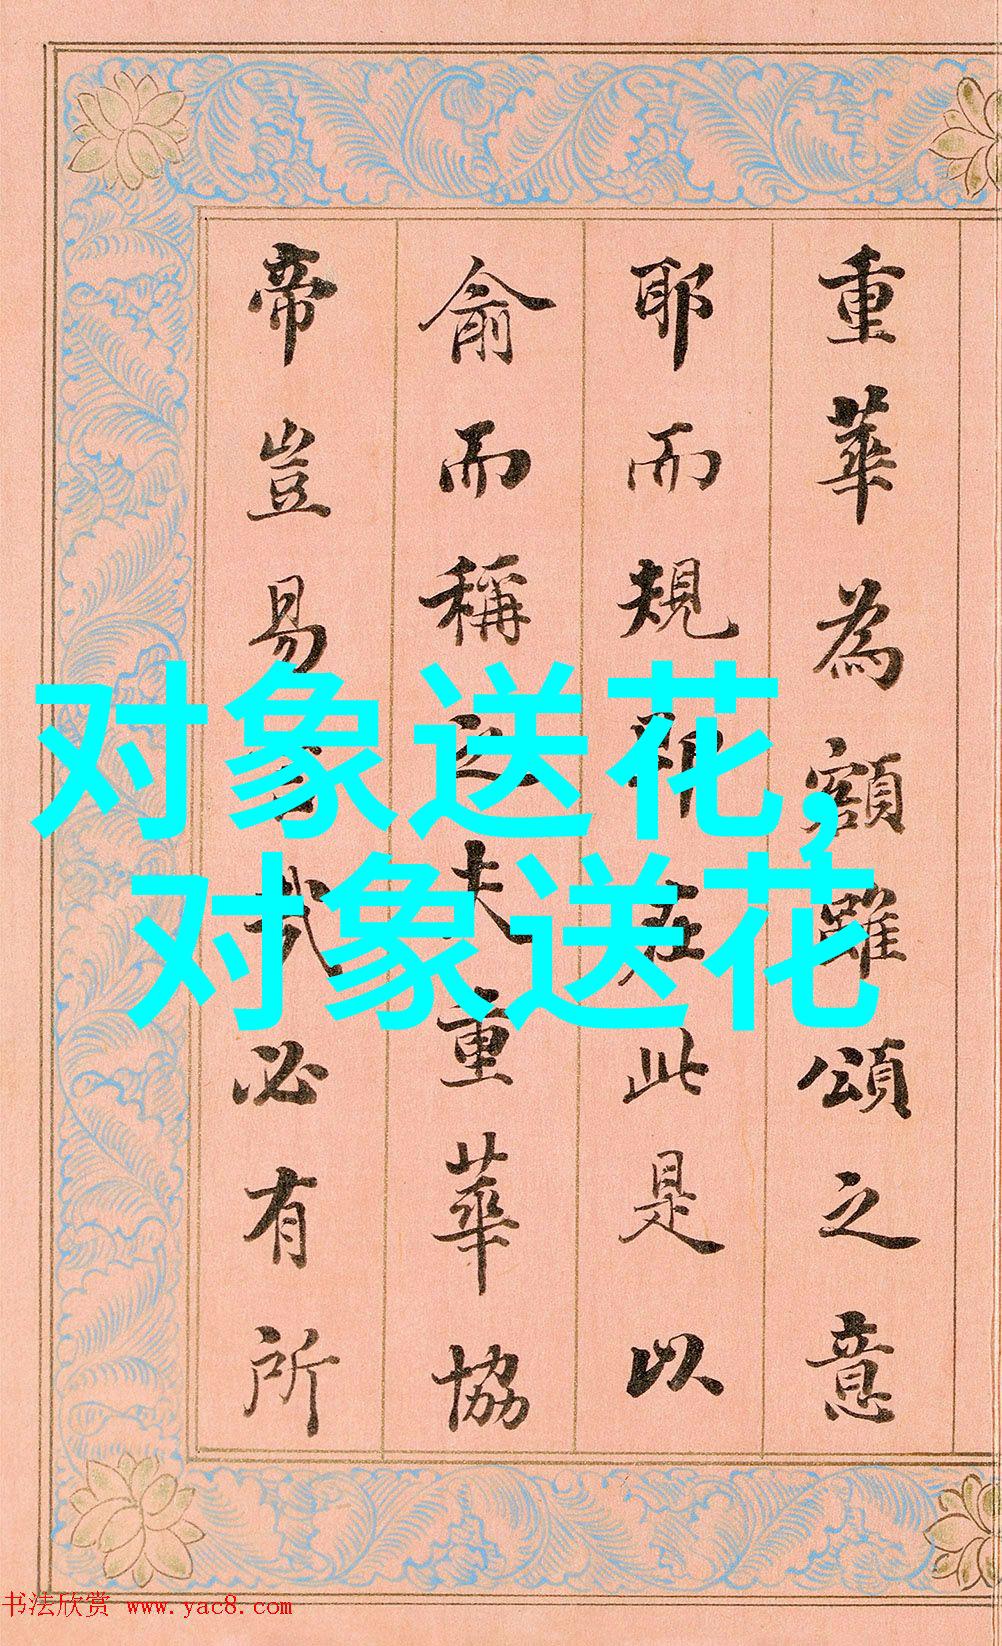 对象送花,
对象送花
重華為額雖頌之意
耶而規在此是以
俞而稱之夫重華協
帝豈易哉必有所
书法欣赏 www.yac8.com